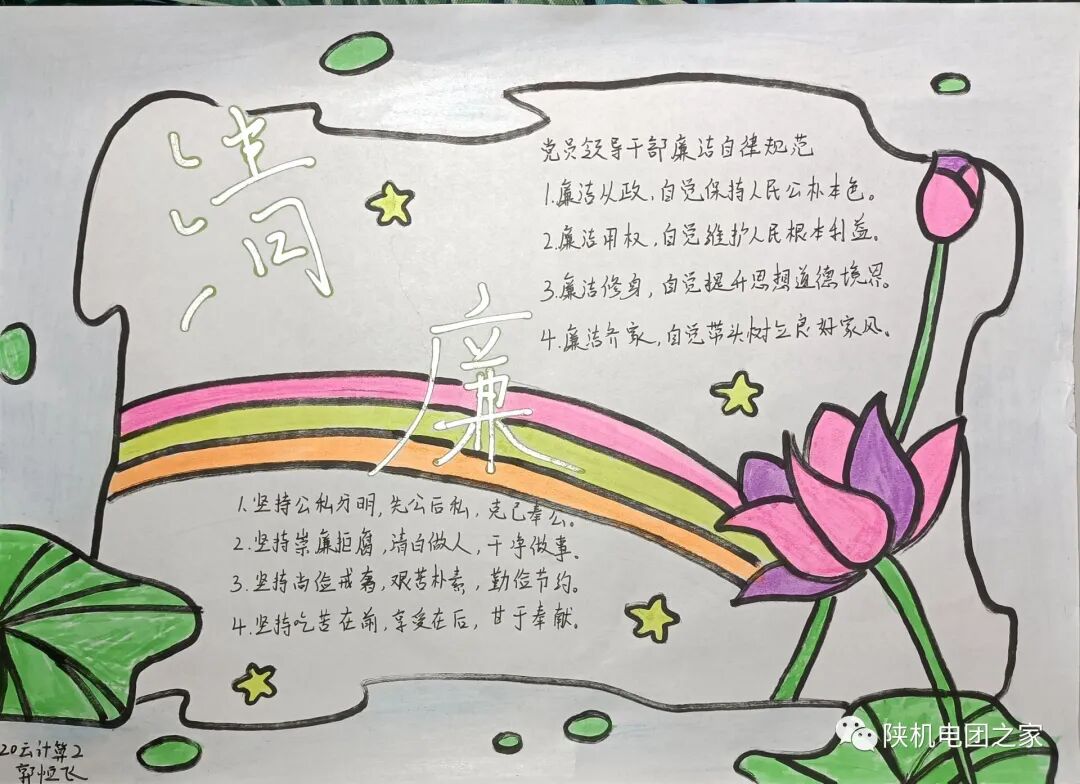 清
廉
党员领导干部廉洁自律规范
1.廉洁从政，自觉保持人民公朴本色。
2.廉洁用权，自觉维护人民根本利益。
3.廉洁修身，自觉提升思想道德境界。
4.廉洁齐家，自觉带头树立良好家风。
1.坚持公私分明，先公后私，克己奉公。
2.坚持崇廉拒腐，清白做人，干净做事。
3.坚持尚俭戒奢，艰苦朴素，勤俭节约。
4.坚持吃苦在前，享受在后，甘于奉献。
20云计算2
郭恒飞
陕机电团之家